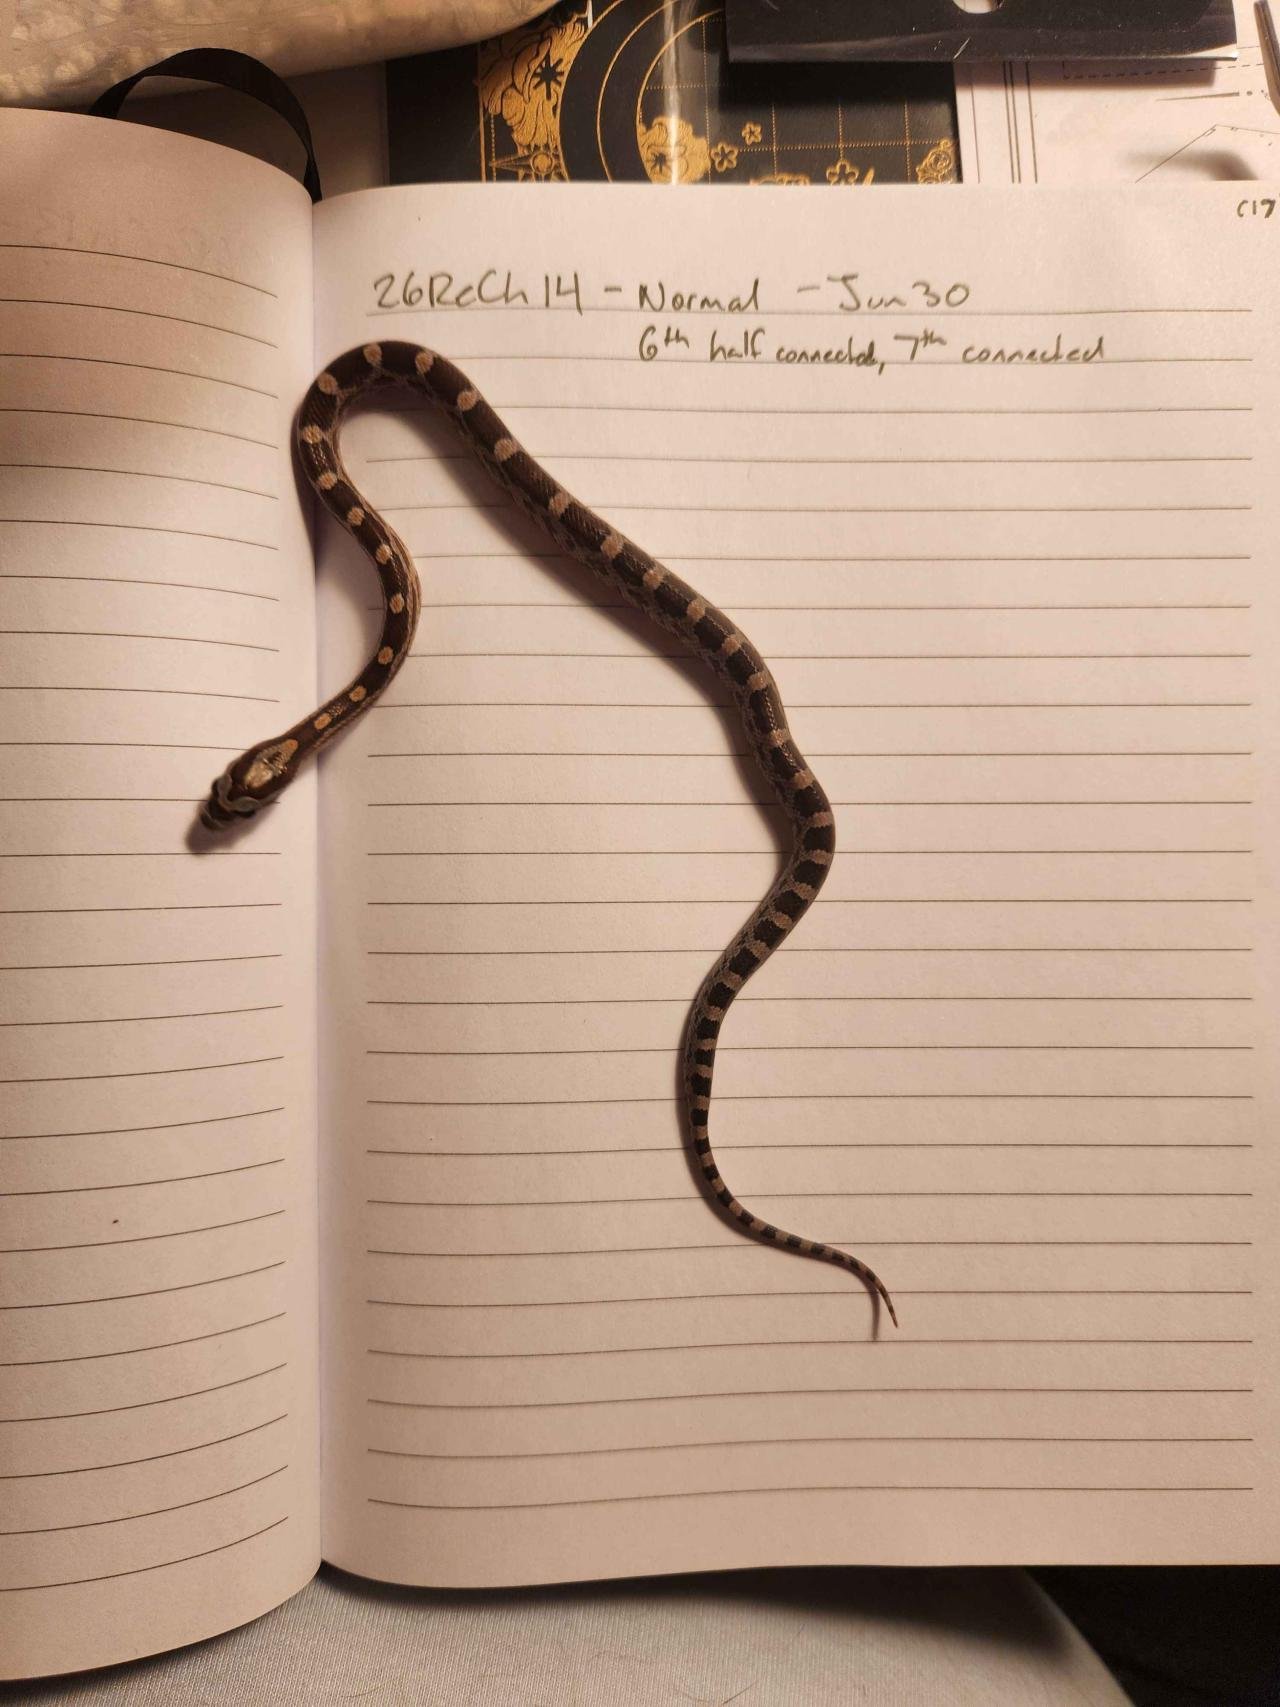 26ReCh14 - Normal - Jun 30
6th half connected, 7th connected